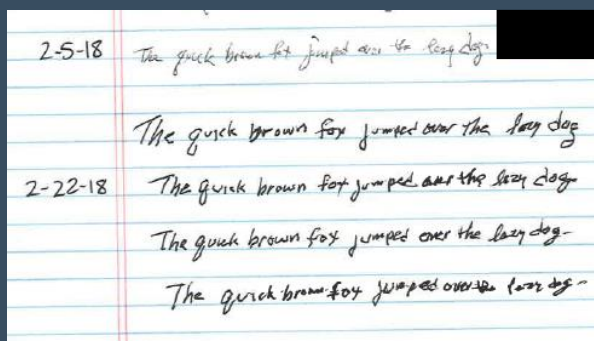 2-5-18 The quick brown fox jumped over the lazy dog.
The quick brown fox jumped over the lazy dog
2-22-18 The quick brown fox jumped over the lazy dog
The quick brown fox jumped over the lazy dog-
The quick brown fox jumped over the lazy dog-